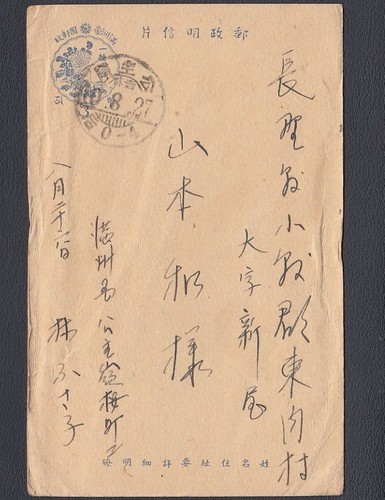 郵政明信片
長野県小県郡東内村
大字新屋
山本
様
満州国公主嶺梅町
八月二十六日
林ふさ子
公主嶺
8
27
0-4
姓名住址要詳細明晰